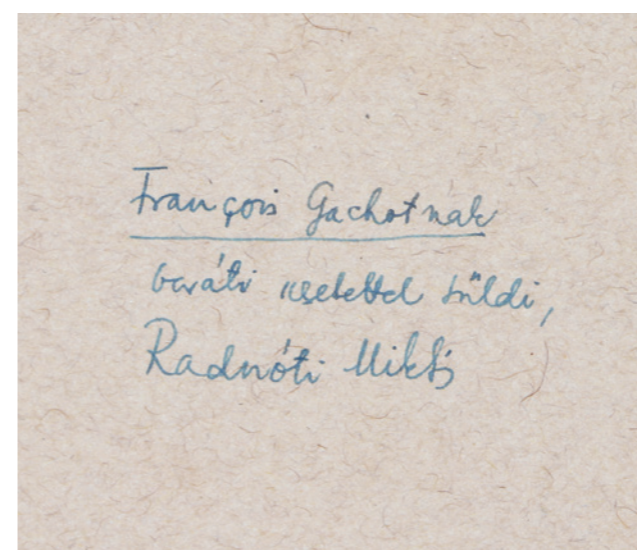 François Gachotnak
baráti szeretettel küldi,
Radnóti Miklós